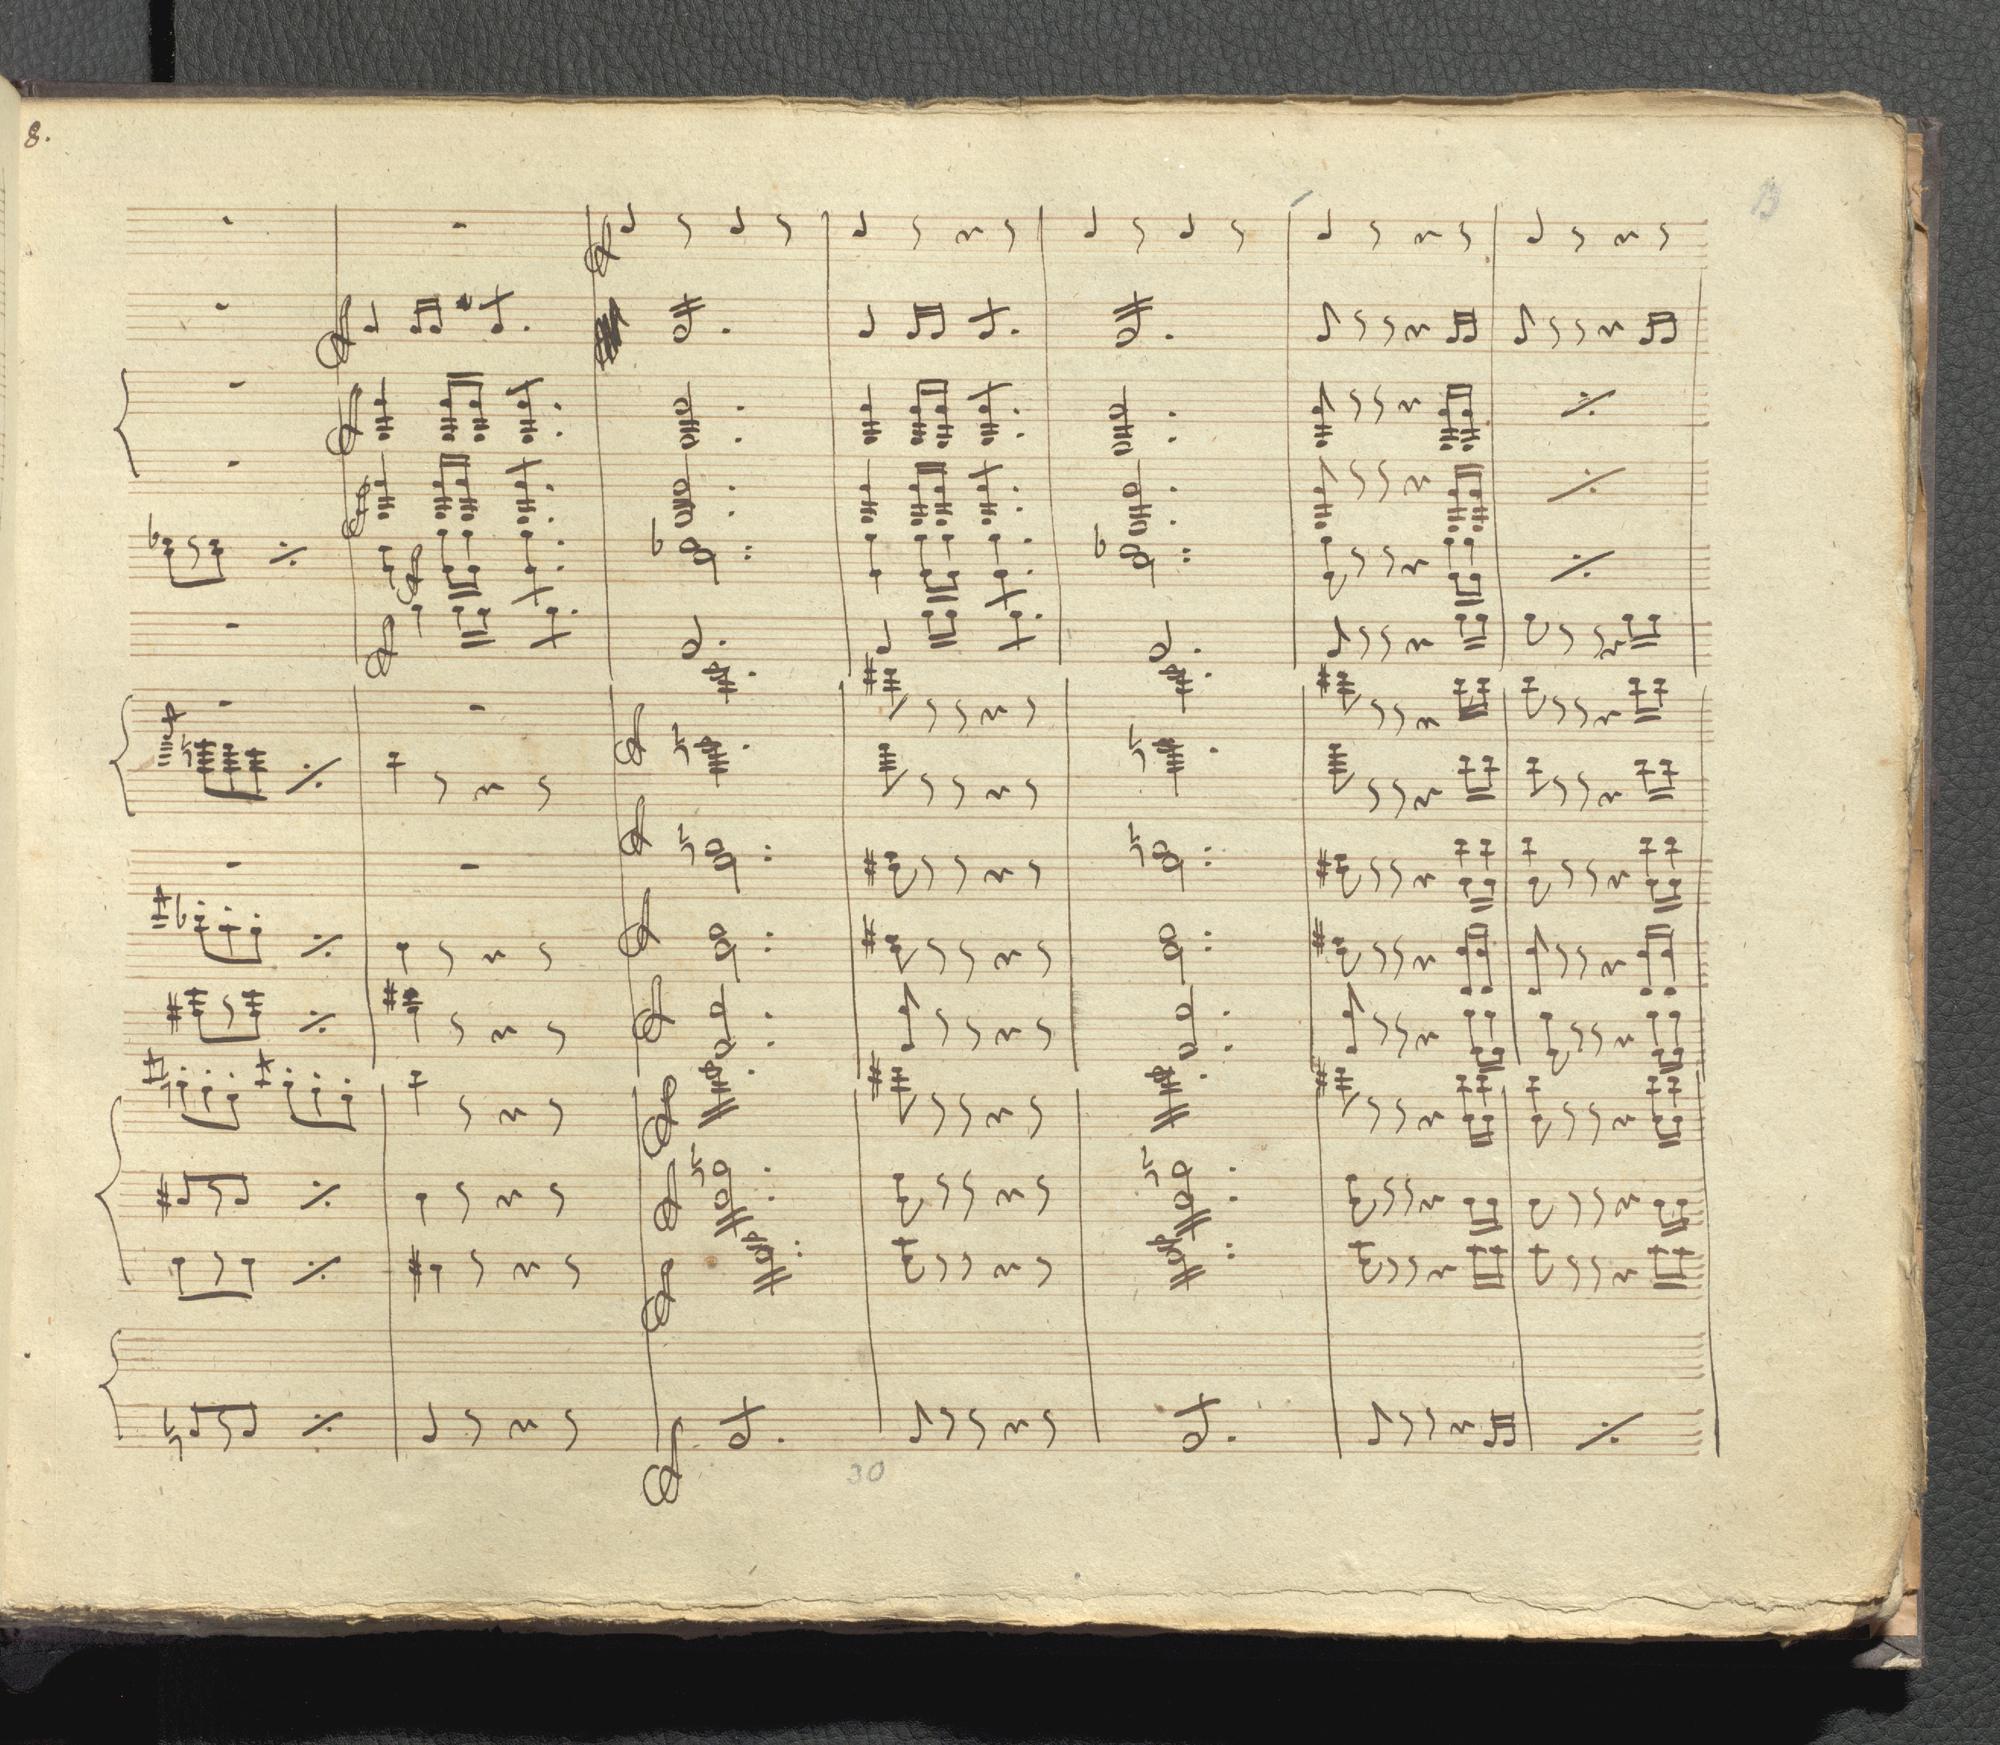 8.
13
30